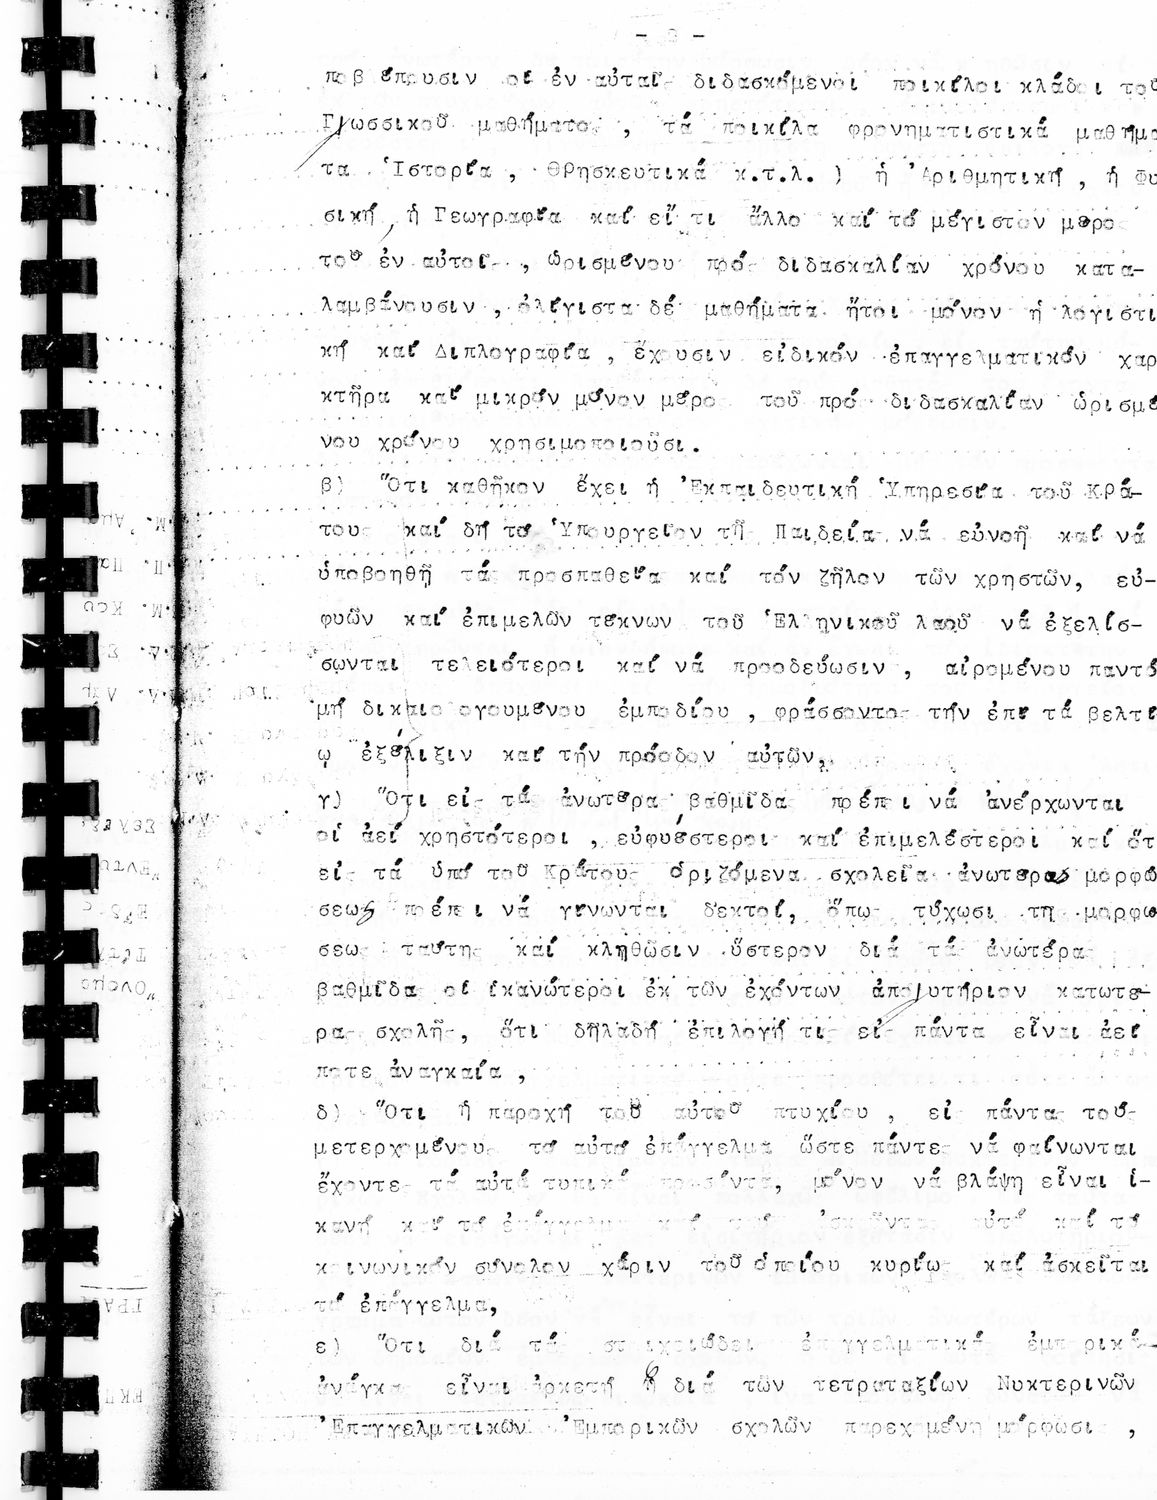 ποβλέπουσιν οἱ ἐν αὐταῖς διδασκόμενοι ποικίλοι κλάδοι τοῦ
Γλωσσικοῦ μαθήματος , τά ποικίλα φρονηματιστικά μαθήμα
τα Ἱστορία , Θρησκευτικά κ.τ.λ. ) ἡ Ἀριθμητική , ἡ Φυ
σική , ἡ Γεωγραφία καί εἴ τι ἄλλο καί τό μέγιστον μέρος
τοῦ ἐν αὐτοῖς , ὡρισμένου πρός διδασκαλίαν χρόνου κατα-
λαμβάνουσιν , ὀλίγιστα δέ μαθήματα ἤτοι μόνον ἡ λογιστι
κή καί Διπλογραφία , ἔχουσιν εἰδικόν ἐπαγγελματικόν χαρ
κτῆρα καί μικρόν μόνον μέρος τοῦ πρός διδασκαλίαν ὡρισμέ
νου χρόνου χρησιμοποιοῦσι.
β) Ὅτι καθῆκον ἔχει ἡ Ἐκπαιδευτική Ὑπηρεσία τοῦ Κρά-
τους καί δή τό Ὑπουργεῖον τῆς Παιδείας νά εὐνοῆ καί νά
ὑποβοηθῆ τάς προσπαθείας καί τόν ζῆλον τῶν χρηστῶν, εὐ-
φυῶν καί ἐπιμελῶν τέκνων τοῦ Ἑλληνικοῦ λαοῦ νά ἐξελίσ-
σωνται τελειότεροι καί νά προοδεύωσιν , αἰρομένου παντό
μή δικαιολογουμένου ἐμποδίου , φράσσοντος τήν ἐπί τά βελτί
ω ἐξέλιξιν καί τήν πρόοδον αὐτῶν,
γ) Ὅτι εἰς τάς ἀνωτέρας βαθμῖδας πρέπει νά ἀνέρχωνται
οἱ ἀεί χρηστότεροι , εὐφυέστεροι καί ἐπιμελέστεροι καί ὅτ
εἰς τά ὑπό τοῦ Κράτους ὁριζόμενα σχολεῖα ἀνωτέρας μορφώ
σεως πρέπει νά γίνωνται δεκτοί, ὅπως τύχωσι τῆς μορφω
σεως ταύτης καί κληθῶσιν ὕστερον διά τάς ἀνωτέρας
βαθμῖδας οἱ ἱκανώτεροι ἐκ τῶν ἐχόντων ἀπολυτήριον κατωτέ-
ρας σχολῆς, ὅτι δηλαδή ἐπιλογή τις εἰς πάντα εἶναι ἀεί
ποτε ἀναγκαία ,
δ) Ὅτι ἡ παροχή τοῦ αὐτοῦ πτυχίου , εἰς πάντας τούς
μετερχομένους τό αὐτό ἐπάγγελμα ὥστε πάντες νά φαίνωνται
ἔχοντες τά αὐτά τυπικά προσόντα, μόνον νά βλάψη εἶναι ἱ-
κανή καί τό ἐπάγγελμα καί τούς ἀσκοῦντας αὐτό καί τό
κοινωνικόν σύνολον χάριν τοῦ ὁποίου κυρίως καί ἀσκεῖται
τό ἐπάγγελμα,
ε) Ὅτι διά τάς στοιχειώδεις ἐπαγγελματικάς ἐμπορικά-
ἀνάγκας εἶναι ἀρκετή ἡ διά τῶν τετραταξίων Νυκτερινῶν
Ἐπαγγελματικῶν Ἐμπορικῶν σχολῶν παρεχομένη μόρφωσις ,